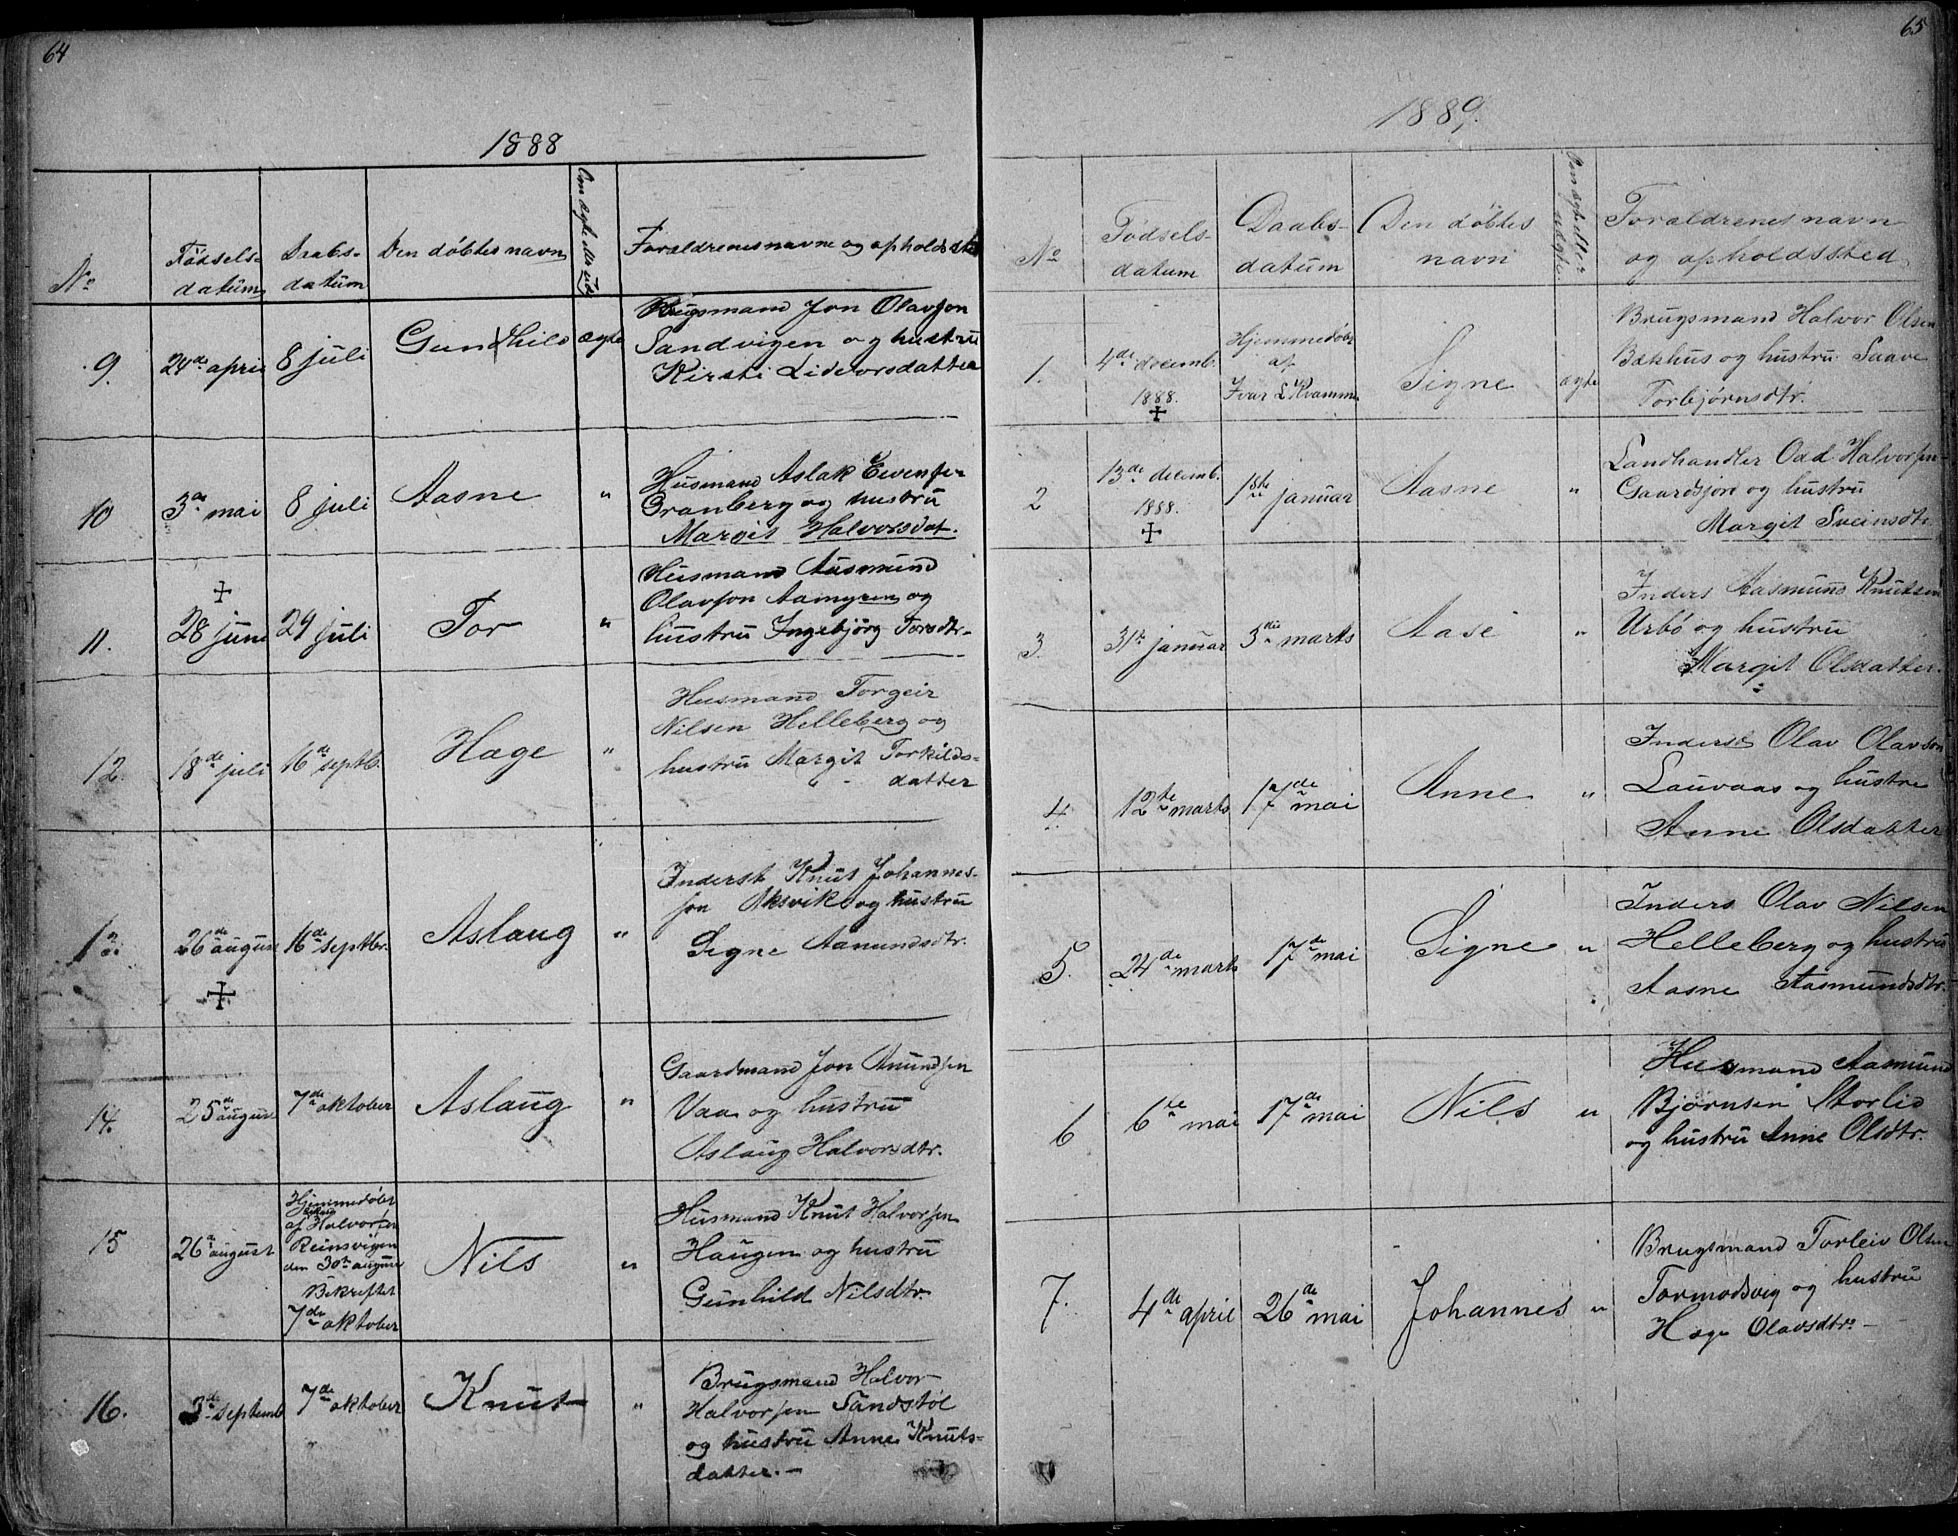 64
1888
No
Fødsels-
datum
Daabs-
datum
Den døbtes navn
Om ægte eller
Forældrenes navne og opholdsste
9.
24de april
8 juli
Gundhild
ægte
Brugsmand Jon Olavson
Sandvigen og hustru
Kirsti Lidvorsdatter
10
3de mai
8 juli
Aasne
"
Husmand Aslak Evensen
Granberg og hustru
Margit Halvorsdat.
11.
+
28 juni
29 juli
Tor
"
Husmand Aasmund
Olavson Aamyren og
hustru Ingebjørg Torsdtr.
12.
18de juli
16de septb.
Hæge
"
Husmand Torgeir
Nilsen Helleberg og
hustru Margit Torkilds-
datter
13.
26de august
+
16de septbr.
Aslaug
"
Inderst Knut Johannes-
son Aksvik og hustru
Signe Aamundsdtr.
14.
25de august
7de oktober
Aslaug
"
Gaardmand Jon Anundsen
Vaa og hustru
Aslaug Halvorsdtr.
15
26de august
Hjemmedøbt
af Halvorsen
Reinsvigen
den 30te august
Bekræftet
7de oktober
Nils
"
Husmand Knut Halvorsen
Haugen og hustru
Gunhild Nilsdtr.
16.
3de septemb
7de oktober
Knut
"
Brugsmand Halvor
Halvorsen Sandstøl
og hustru Anne Knuts-
datter. —
65
1889.
No
Fødsels-
datum
Daabs-
datum
Den døbtes
navn
Om ægte eller
uægte
Foraldrenes navn
og opholdssted
1.
4de decemb.
1888.
+
Hjemmedøbt
af
Ivar L Kvamme
Signe
ægte
Brugsmand Halvor Olsen
Bækhus og hustru Saave
Torbjørnsdtr.
2
13de decemb.
1888.
+
1ste januar
Aasne
"
Landhandler Odd Halvorsen
Gaardsjord og hustru
Margit Sveinsdtr
3.
31te januar
3die marts
Aase
"
Inders Aasmund Knutsen
Urbø og hustru
Margit Olsdatter.
4.
12te marts
17de mai
Anne
"
Inderst Olav Olavson
Lauvaas og hustru
Anne Olsdatter
5.
24de marts
17de mai
Signe
"
Inders Olav Nilsen
Helleberg og hustru
Aasne Aasmundsdtr.
6
6te mai
17de mai
Nils
"
Husmand Aasmund
Bjørnsen Storlid
og hustru Anne Olsdtr.
7.
4de april
26de mai
Johannes
"
Brugsmand Torleiv Olsen
Tormodsvig og hustru
Hæge Olavsdtr. —